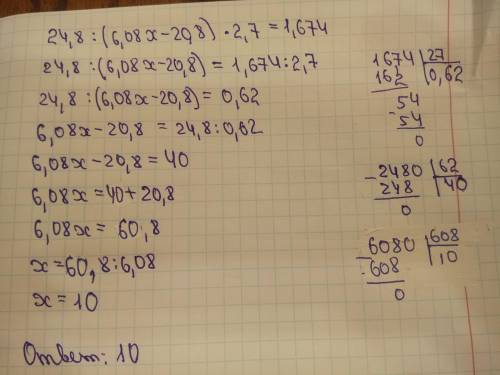 24,8 : (6,08x-20,8) · 2,7 = 1,674
24,8 : (6,08x-20,8) = 1,674 : 2,7
24,8 : (6,08x-20,8) = 0,62
6,08x - 20,8 = 24,8 : 0,62
6,08x - 20,8 = 40
6,08x = 40 + 20,8
6,08x = 60,8
x = 60,8 : 6,08
x = 10
Ответ: 10
1674 | 27
162 | 0,62
54
- 54
0
- 2480 | 62
248 | 40
0
- 6080 | 608
608 | 10
0